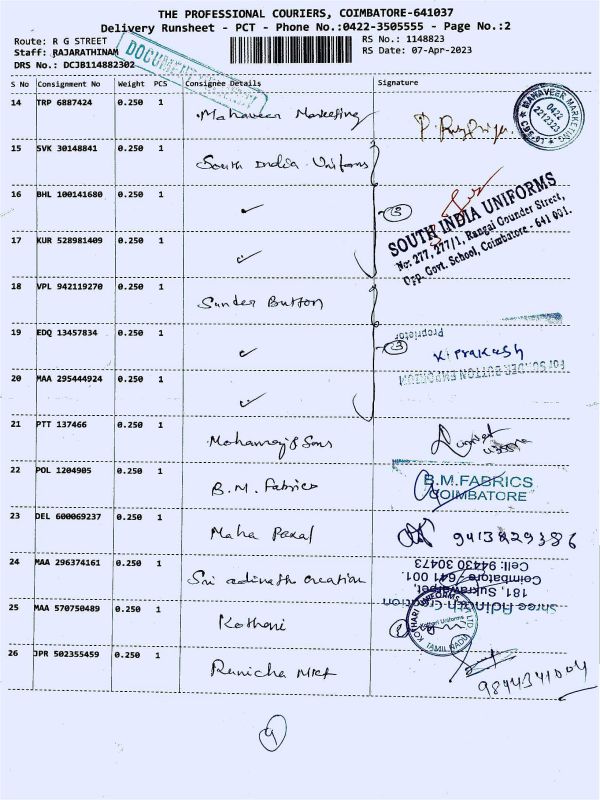 THE PROFESSIONAL COURIERS, COIMBATORE-641037
Delivery Runsheet - PCT - Phone No.:0422-3505555 - Page No.:2
Route: R G STREET
RS No.: 1148823
Staff: RAJARATHINAM
RS Date: 07-Apr-2023
DRS No.: DCJB114882302
S No Consignment No Weight PCS Consignee Details Signature
14 TRP 6887424 0.250 1 Mahaveer Marketing
MAHAVEER MARKETING
0422
2212323
CBE-1
15 SVK 30148841 0.250 1 South India Uniforms
16 BHL 100141680 0.250 1 ✓ 3
SOUTH INDIA UNIFORMS
No: 277, 277/1, Rangai Gounder Street,
Opp. Govt. School, Coimbatore - 641 001.
17 KUR 528981409 0.250 1 ✓
18 VPL 942119270 0.250 1 Sunder Button
19 EDQ 13457834 0.250 1 ✓ 3
Proprietor
K. Prakash
For SUNDER BUTTON EMPORIUM
20 MAA 295444924 0.250 1 ✓
21 PTT 137466 0.250 1 Mohanraj & Sons
22 POL 1204905 0.250 1 B.M. Fabrics
B.M.FABRICS
COIMBATORE
23 DEL 600069237 0.250 1 Maha
24 MAA 296374161 0.250 1 Sri adinath creation
Cell: 94430 30473
Coimbatore - 641 001
181, Sukrawarpet,
Shree Adinath Creation
25 MAA 570750489 0.250 1 Kothari
KOTHARI UNIFORMS PVT LTD
Kothari Uniforms
TAMIL NADU
26 JPR 502355459 0.250 1 Runicha Mkt
9844341004
9